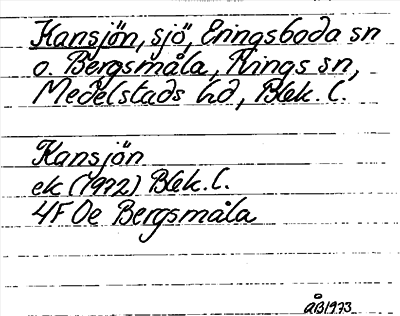 Kansjön, sjö, Eringsboda sn
o. Bergsmåla, Rings sn,
Medelstads hd, Blek. l.
Kansjön
ek (1972) Blek. l.
4F 0e Bergsmåla
ÅB1973